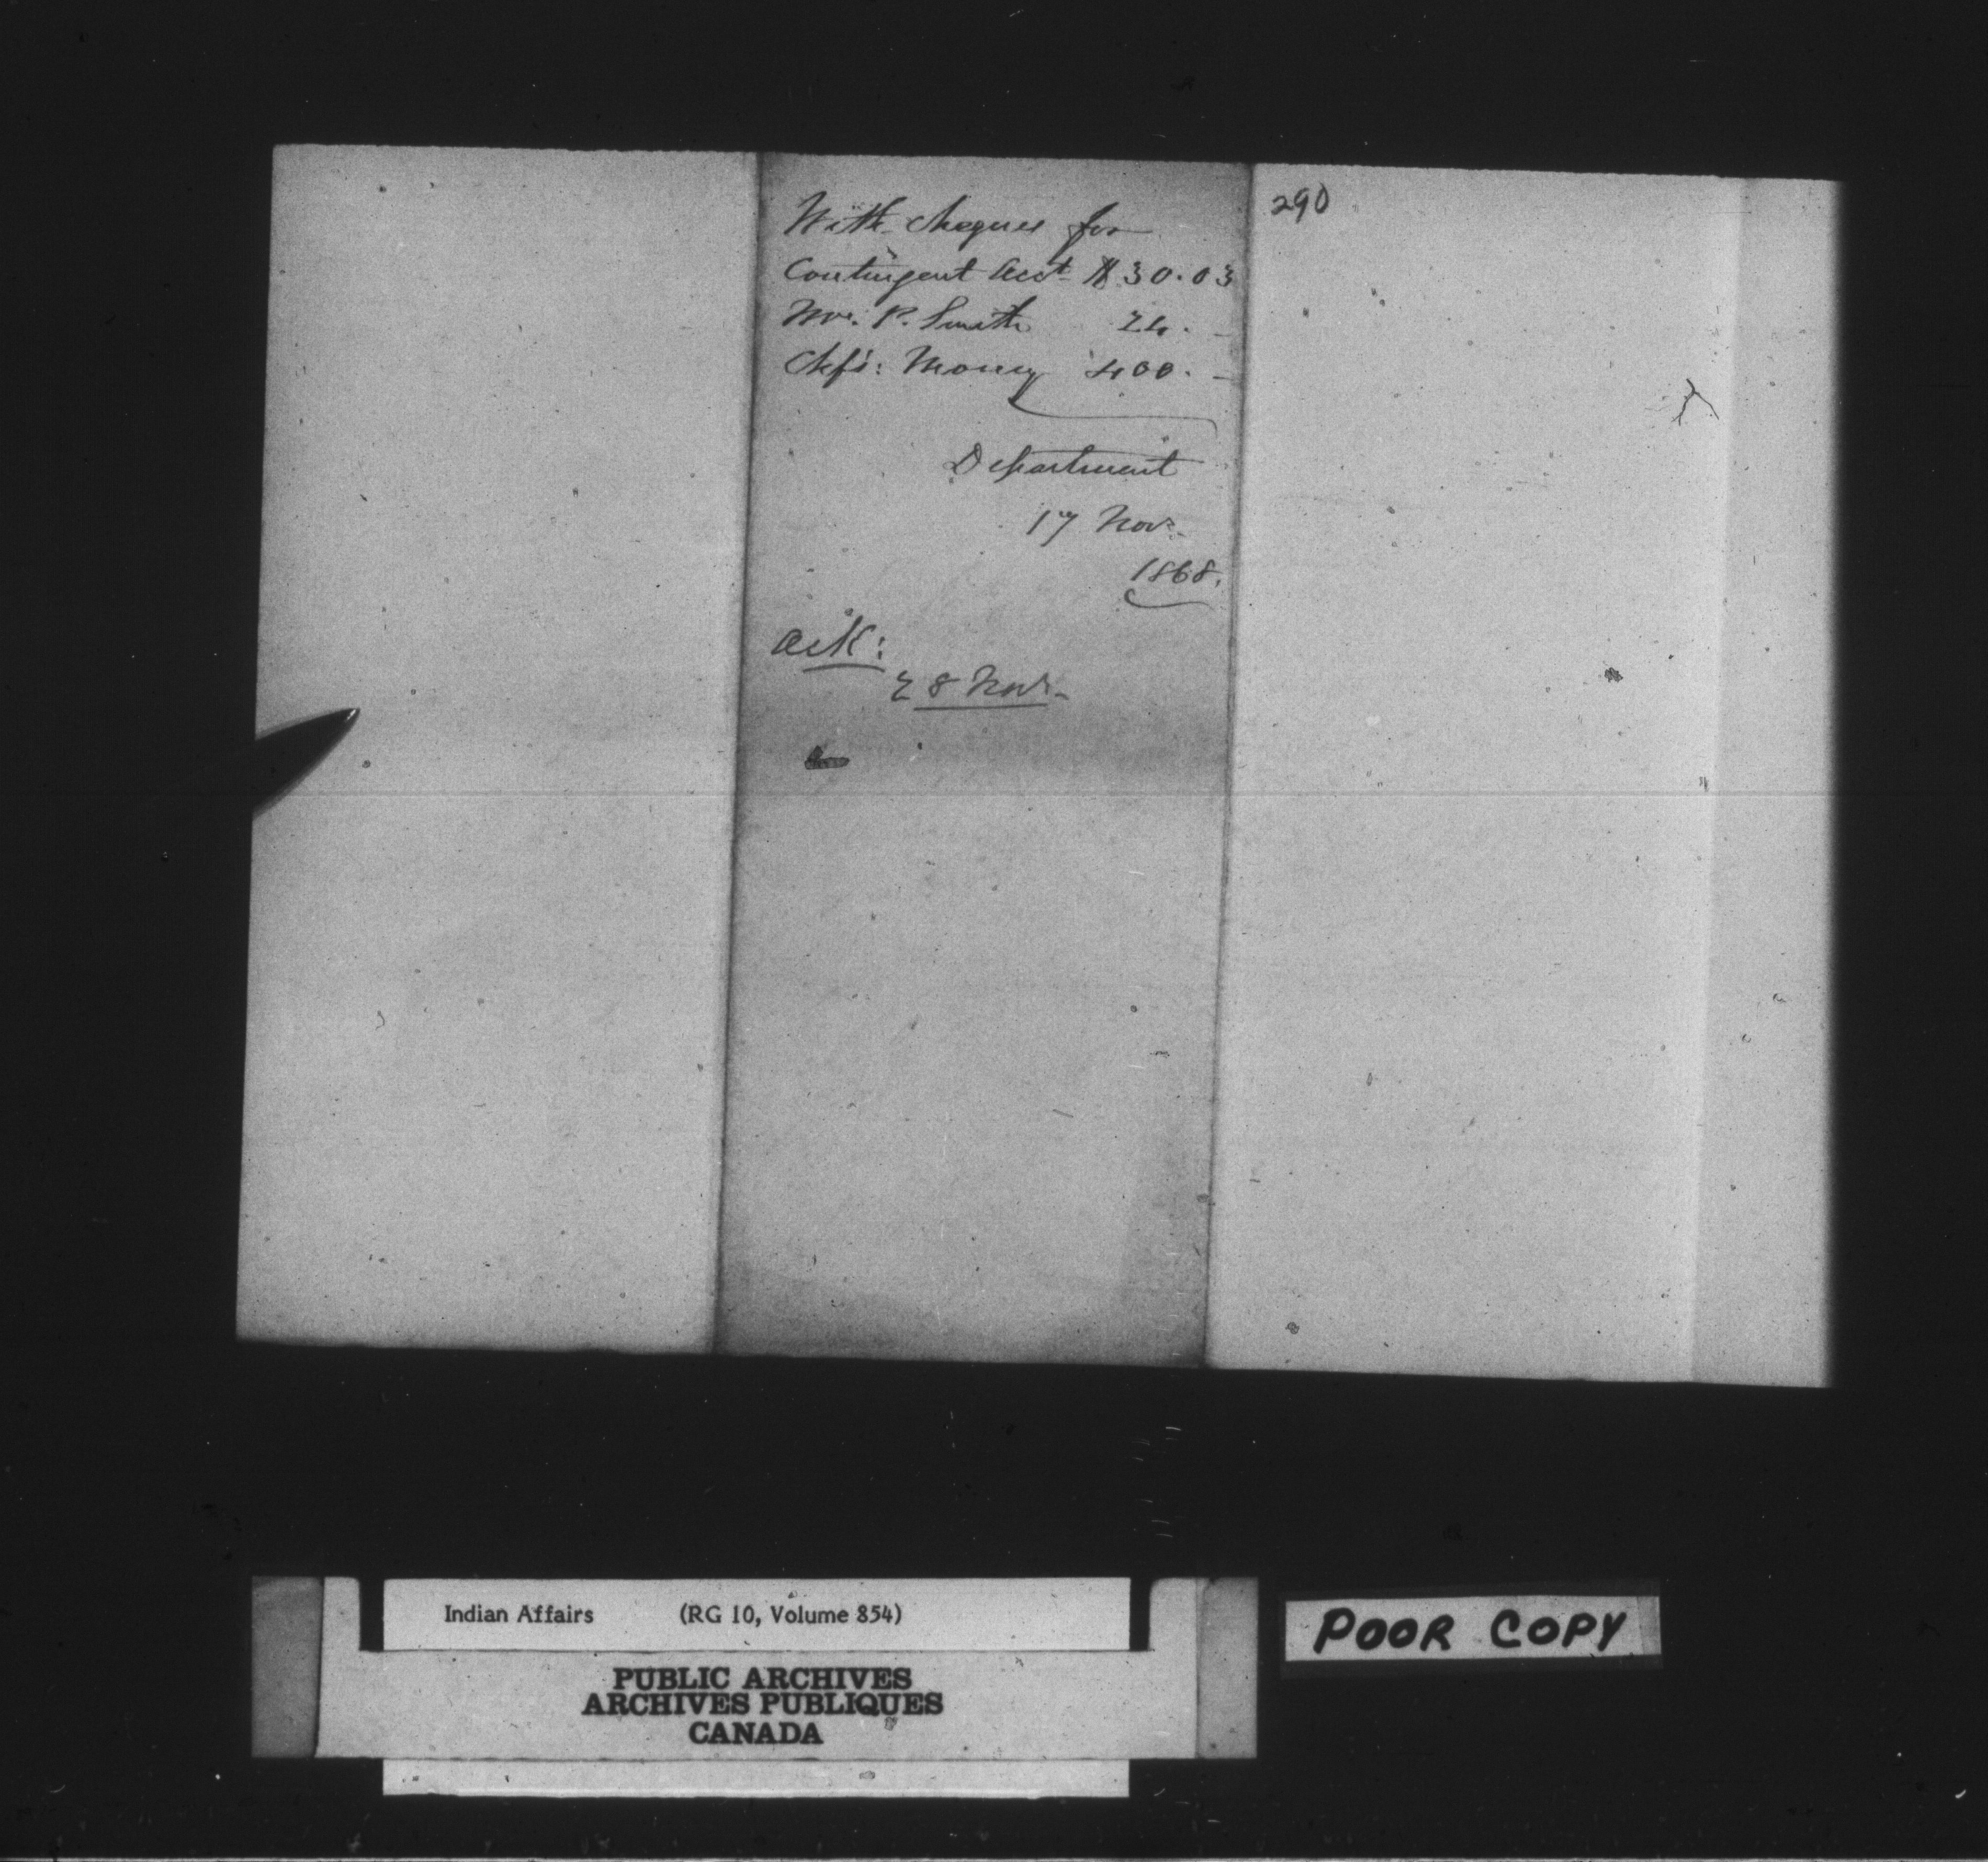 With Cheques for
Contingent Acct $30.03
Mr. P. Smith 24. –
Chfs: Money 400. –
Department
17 Nov.
1868.
Ack:
28 Nov.
290
Indian Affairs (RG 10, Volume 854)
PUBLIC ARCHIVES
ARCHIVES PUBLIQUES
CANADA
POOR COPY